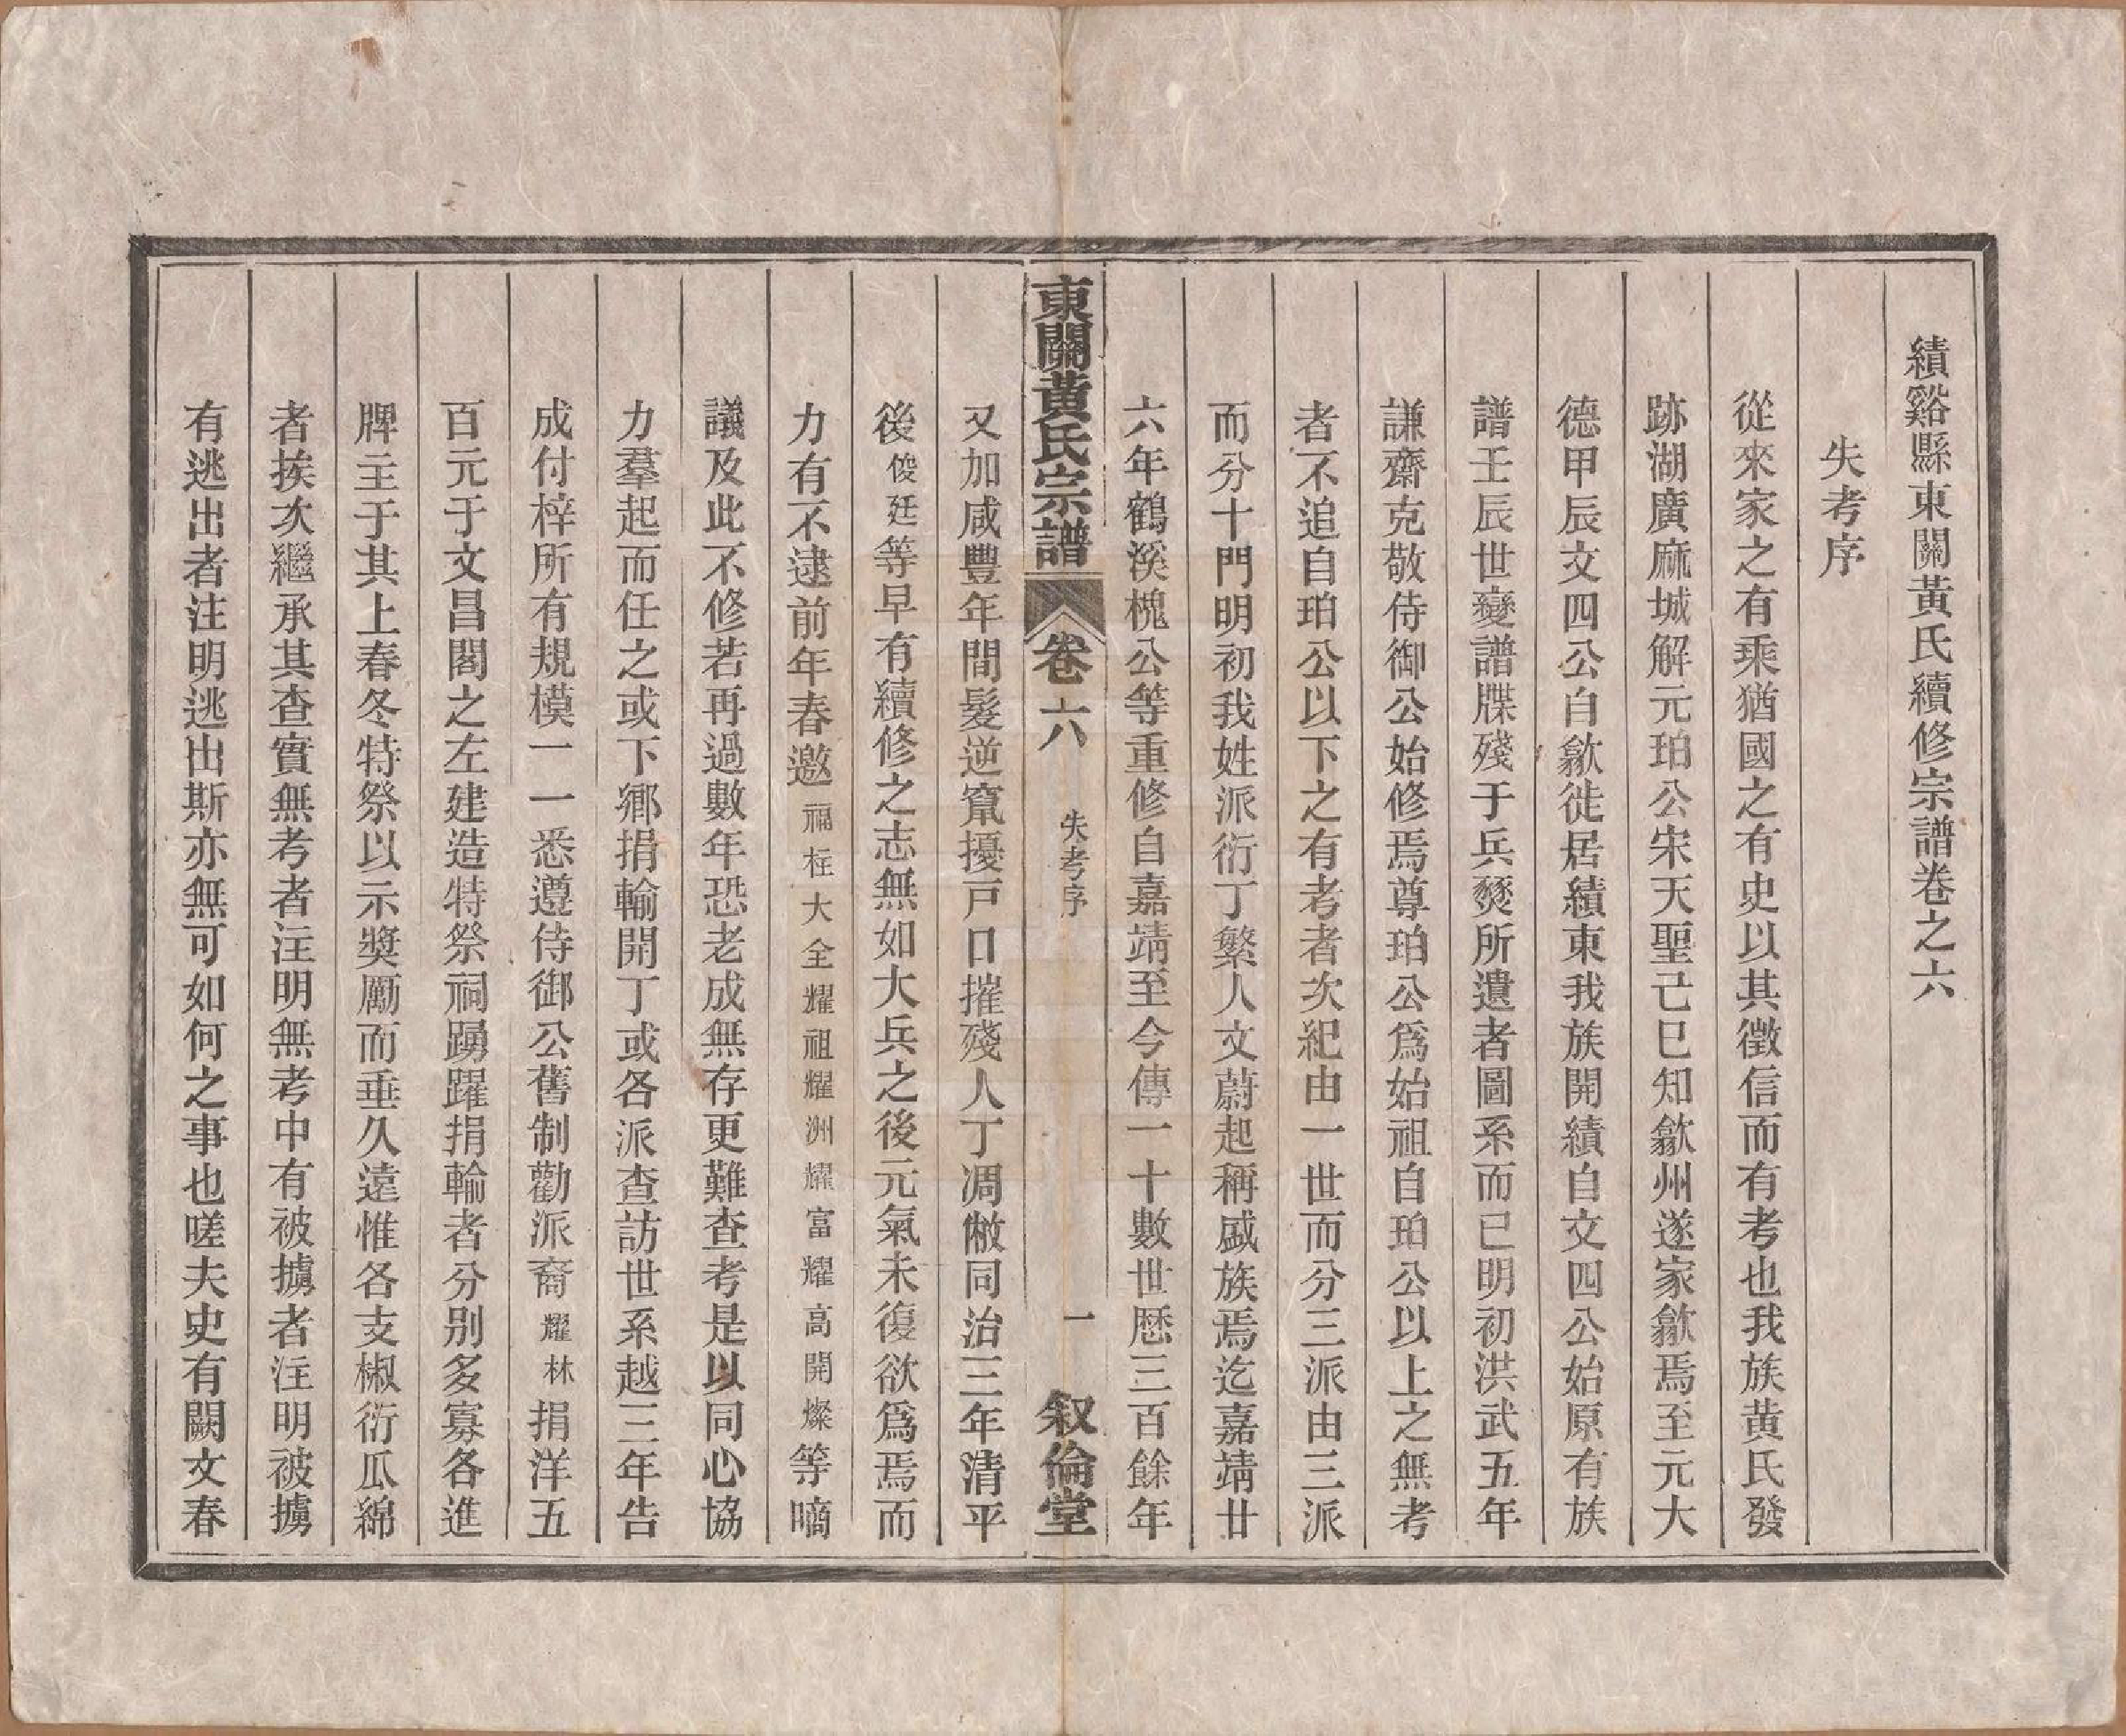 績谿縣東關黃氏續修宗譜卷之六
失考序
從來家之有乘猶國之有史以其徵信而有考也我族黃氏發
跡湖廣麻城解元珀公宋天聖己巳知歙州遂家歙焉至元大
德甲辰文四公自歙徙居績東我族開績自文四公始原有族
譜壬辰世變譜牒殘于兵燹所遺者圖系而已明初洪武五年
謙齋克敬侍御公始修焉尊珀公爲始祖自珀公以上之無考
者不追自珀公以下之有考者次紀由一世而分三派由三派
而分十門明初我姓派衍丁繁人文蔚起稱盛族焉迄嘉靖廿
六年鶴溪槐公等重修自嘉靖至今傳一十數世歷三百餘年
東關黃氏宗譜 卷六 失考序 一 叙倫堂
又加咸豐年間髮逆竄擾戸口摧殘人丁凋敝同治三年清平
後俊廷等早有續修之志無如大兵之後元氣未復欲爲焉而
力有不逮前年春邀福枉大全耀祖耀洲耀富耀高開燦等嘀
議及此不修若再過數年恐老成無存更難查考是以同心協
力羣起而任之或下鄉捐輸開丁或各派查訪世系越三年告
成付梓所有規模一一悉遵侍御公舊制勸派裔耀林捐洋五
百元于文昌閣之左建造特祭祠踴躍捐輸者分別多寡各進
牌主于其上春冬特祭以示獎勵而垂久遠惟各支椒衍瓜綿
者挨次繼承其查實無考者注明無考中有被擄者注明被擄
有逃出者注明逃出斯亦無可如何之事也嗟夫史有闕文春